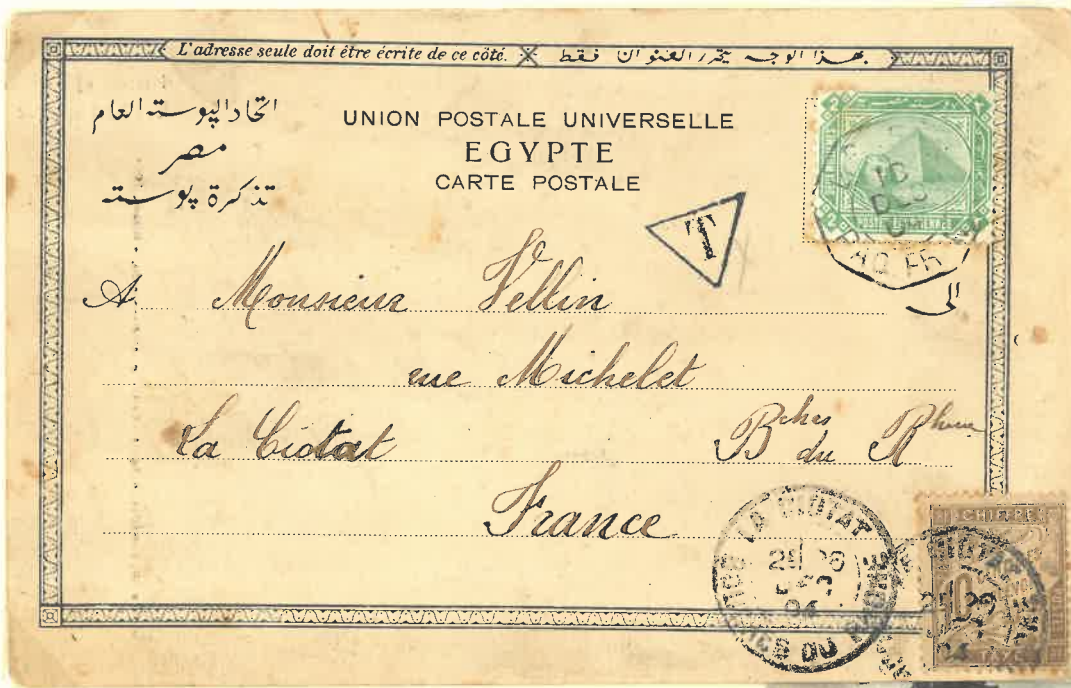 L'adresse seule doit être écrite de ce côté. بهذا الوجه يحرر العنوان فقط
اتحاد البوستة العام
مصر
تذكرة بوستة
UNION POSTALE UNIVERSELLE
EGYPTE
CARTE POSTALE
2 2
2 2
DEC
PAQ FR
T
A Monsieur Vellin
الى
rue Michelet
La Ciotat Bches du Rhône
France
LA CIOTAT
25
DEC
04
BCHES DU RHONE
CHIFFRE
10